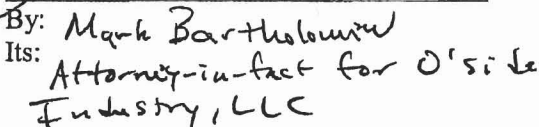 By: Mark Bartholomew
Its:
Attorney-in-fact for O'side
Industry, LLC